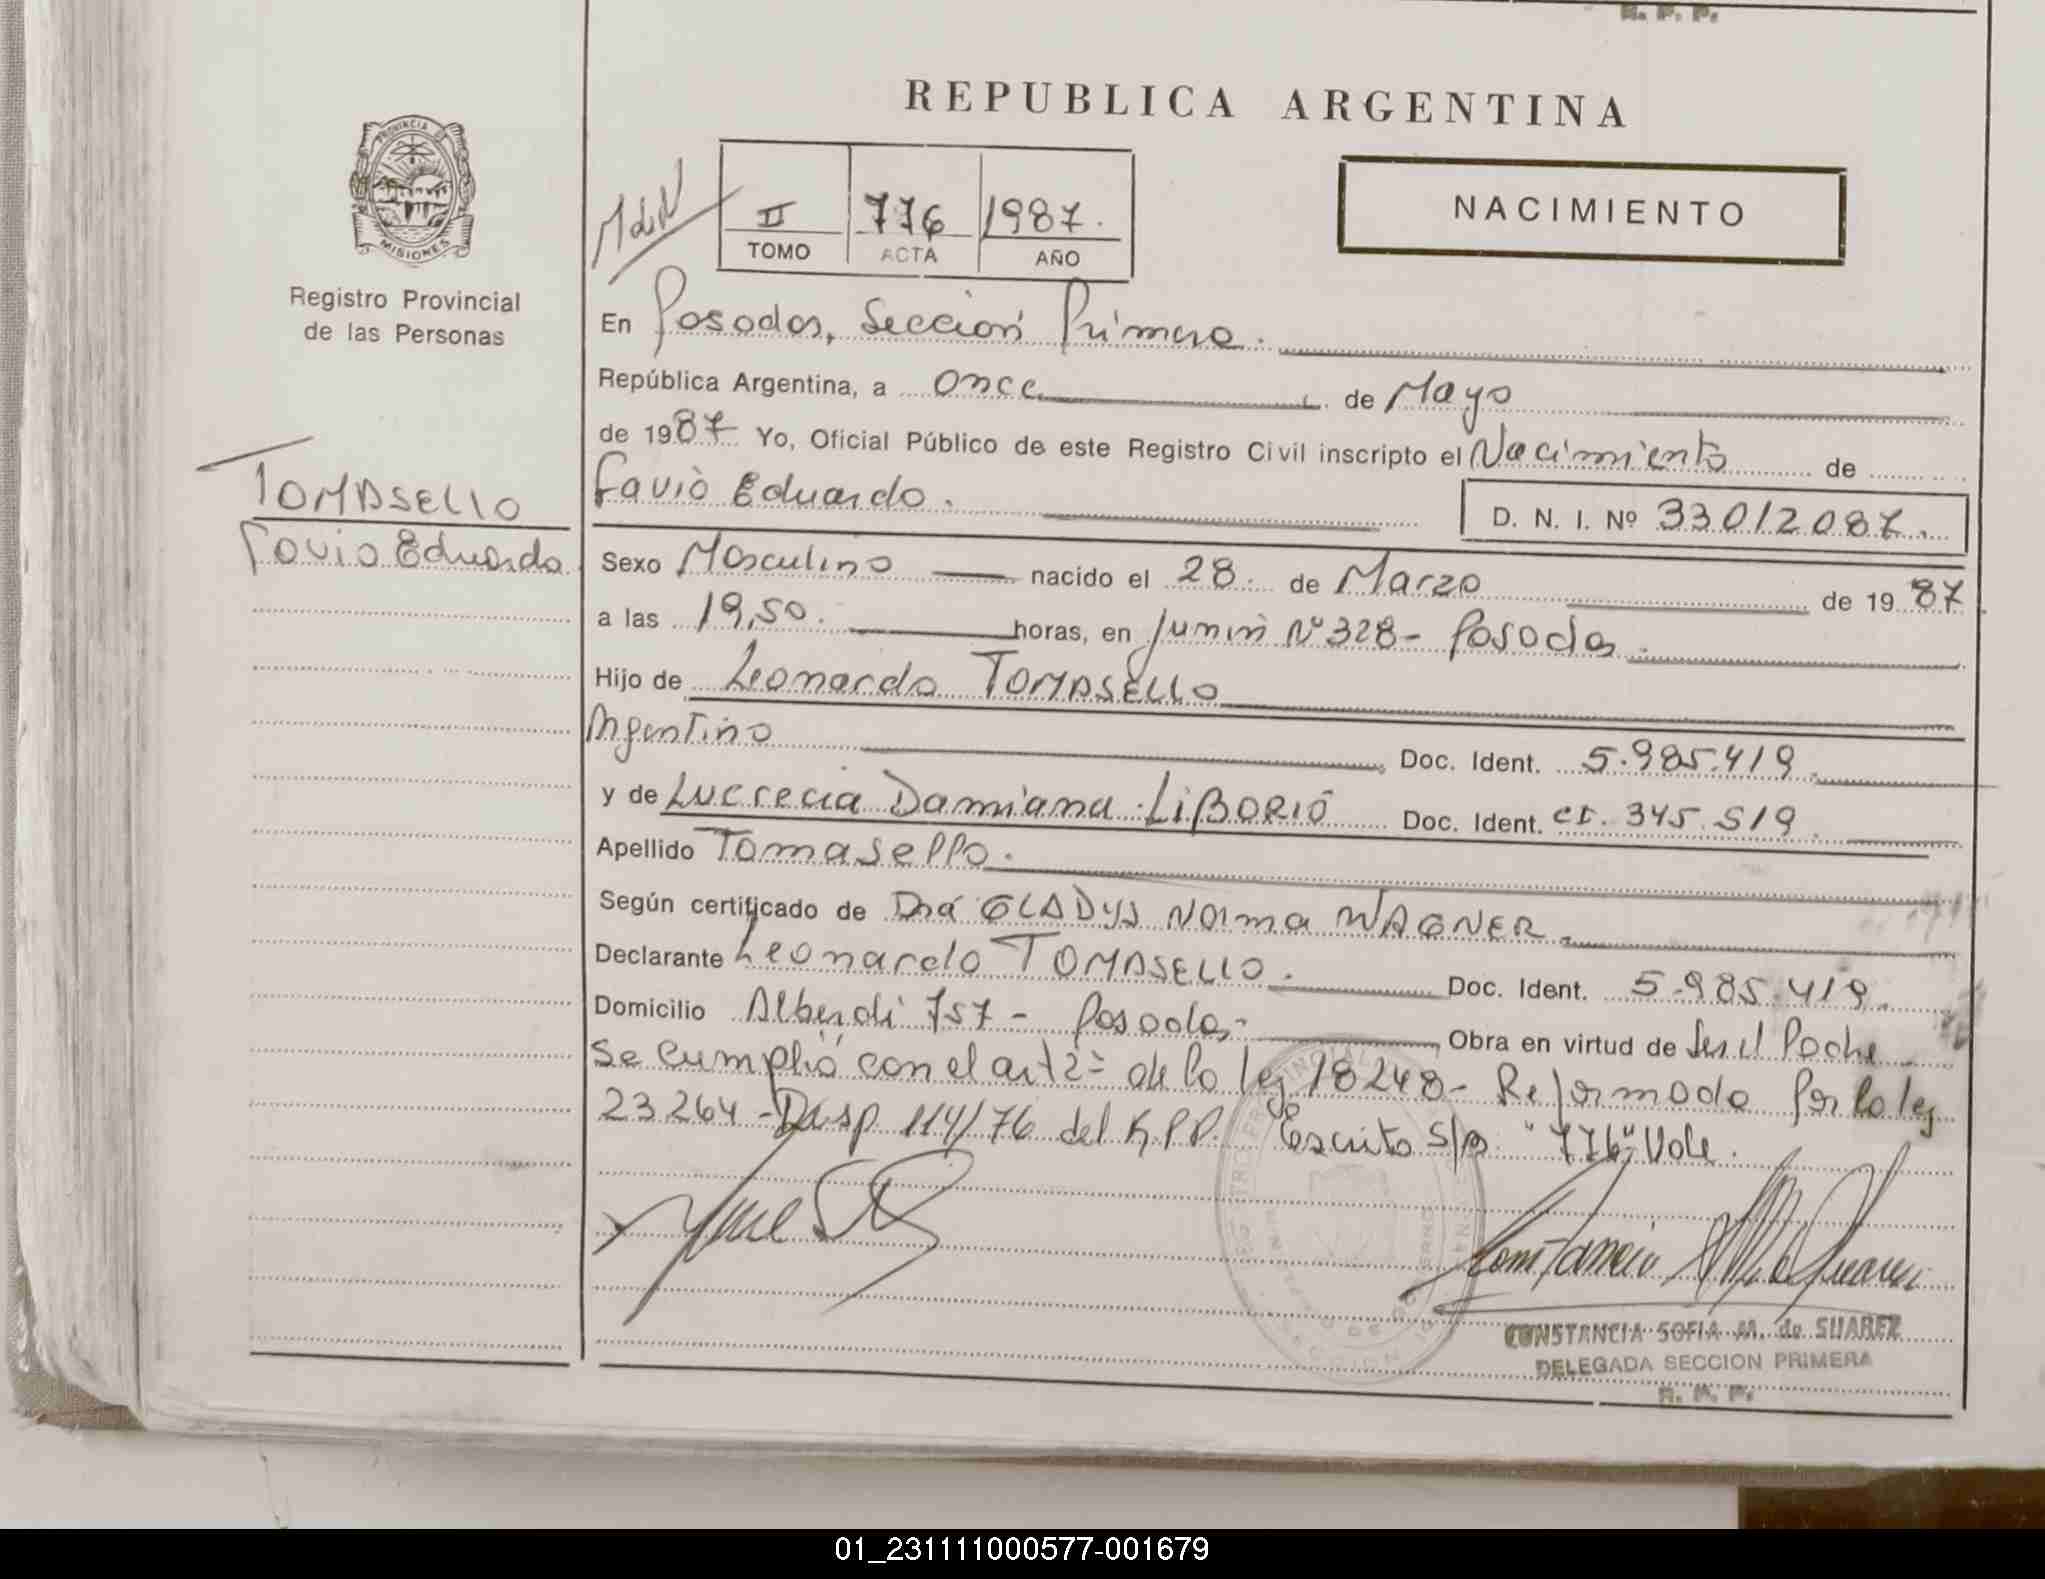 R. P. P.
REPUBLICA ARGENTINA
PROVINCIA DE
MISIONES
Registro Provincial
de las Personas
II 776 1987.
TOMO ACTA AÑO
NACIMIENTO
En Posadas, Sección Primera.
República Argentina, a once de Mayo
de 1987 Yo, Oficial Público de este Registro Civil inscripto el Nacimiento de
TOMASELLO
Favio Eduardo
Favio Eduardo.
D. N. I. Nº 33012087.
Sexo Masculino nacido el 28. de Marzo de 1987
a las 19,50. horas, en Junin Nº 328- Posadas.
Hijo de Leonardo TOMASELLO
Argentino Doc. Ident. 5.985.419.
y de Lucrecia Damiana LiBORIO Doc. Ident. CI. 345.519.
Apellido Tomasello.
Según certificado de Dra GLADYS Norma WAGNER.
Declarante Leonardo TOMASELLO. Doc. Ident. 5.985.419.
Domicilio Alberdi 757 - Posadas- Obra en virtud de Ser el Padre
Se Cumplió con el art 2º de la ley 18248- Reformada por la ley
23264 - Disp 114/76 del R.P.P. Escrito S/B "776" Vale.
Constancia M de Suarez
CONSTANCIA SOFIA M. de SUAREZ
DELEGADA SECCION PRIMERA
R. P. P.
01_231111000577-001679